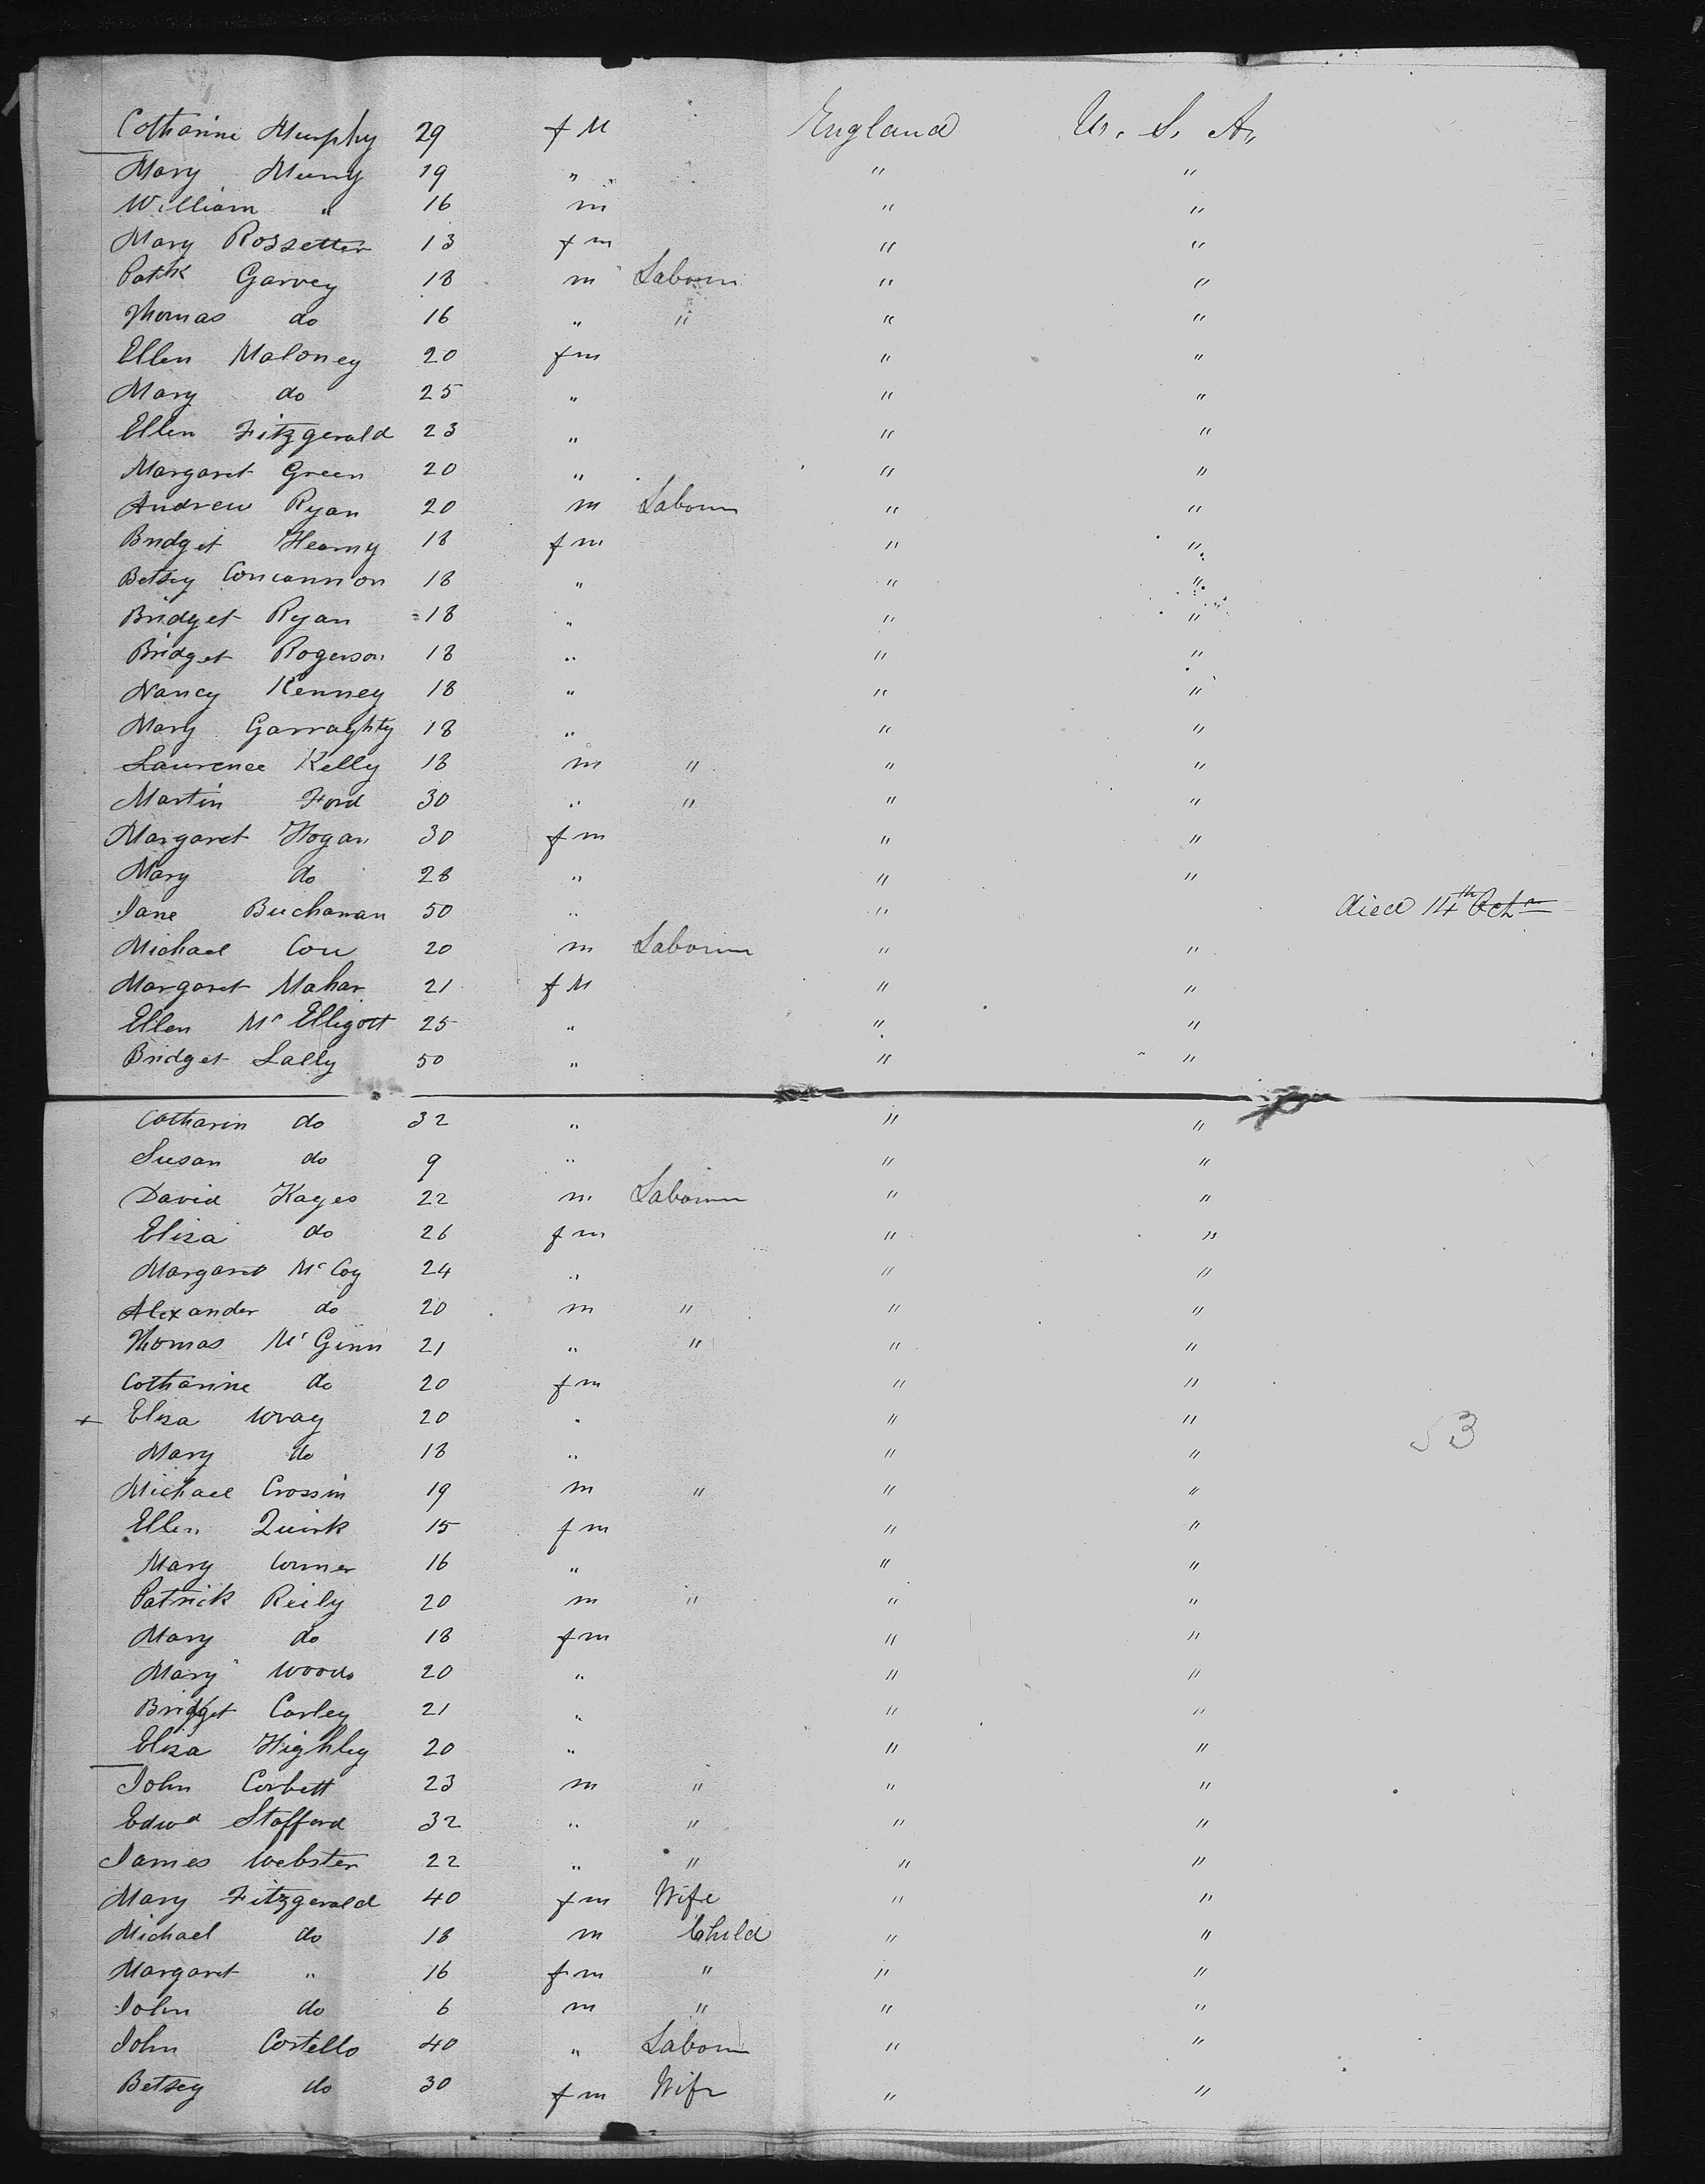 Catharine Murphy 29 f M England U. S. A.
Mary Murry 19 " " "
William " 16 m " "
Mary Rossetter 13 f m " "
Patk Garvey 18 m Laborer " "
Thomas do 16 " " " "
Ellen Maloney 20 f m " "
Mary do 25 " " "
Ellen Fitzgerald 23 " " "
Margaret Green 20 " " "
Andrew Ryan 20 m Laborer " "
Bridget Hearny 18 f m " "
Betsey Concannon 18 " " "
Bridget Ryan 18 " " "
Bridget Rogerson 18 " " "
Nancy Kenney 18 " " "
Mary Garraghty 18 " " "
Laurence Kelly 18 m " " "
Martin Ford 30 " " " "
Margaret Hogan 30 f m " "
Mary do 28 " " "
Jane Buchanan 50 " " died 14th Oct
Michael 20 m Laborer " "
Margaret Mahar 21 f M " "
Ellen Mc Elligott 25 " " "
Bridget Lally 50 " " "
Catharin do 32 " " "
Susan do 9 " " "
David Hayes 22 m Laborer " "
Eliza do 26 f m " "
Margaret Mc Coy 24 " " "
Alexander do 20 m " " "
Thomas Mc Ginn 21 " " " "
Catharine do 20 f m " "
+ Eliza Wray 20 " " "
Mary do 18 " " " 53
Michael Crossin 19 m " " "
Ellen Quirk 15 f m " "
Mary 16 " " "
Patrick Reily 20 m " " "
Mary do 18 f m " "
Mary Woods 20 " " "
Bridget Corley 21 " " "
Eliza Highley 20 " " "
John Corbett 23 m " " "
Edwd Stafford 32 " " " "
James Webster 22 " " " "
Mary Fitzgerald 40 f m Wife " "
Michael do 18 m Child " "
Margaret " 16 f m " " "
John do 6 m " " "
John Costello 40 " Laborer " "
Betsey do 30 f m Wife " "